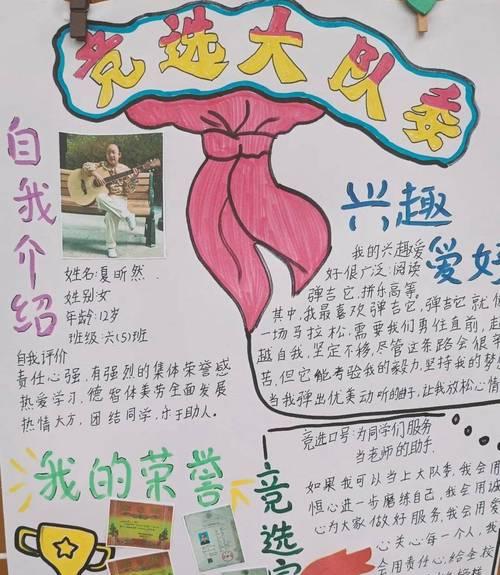 竞选大队委
自我介绍
姓名:夏昕然.
姓别:女
年龄:12岁
班级:六(5)班
自我评价
责任心强,有强烈的集体荣誉感
热爱学习,德智体美劳全面发展
热情大方,团结同学,乐于助人。
兴趣
爱好
我的兴趣爱
好很广泛:阅读
弹吉它,拼乐高等。
其中,我最喜欢弹吉它,弹吉它就
一场马拉松,需要我们勇往直前,超
越自我,坚定不移,尽管这条路会很辛
苦,但它能考验我的毅力,坚持我的梦
当我弹出优美动听的曲子,让我放松心情
我的荣誉
竞选
竞选口号:为同学们服务
当老师的助手.
如果我可以当上大队委,我会用
恒心进一步磨练自己,我会用诚
心为大家做好服务,我会用爱
心关心每一个人,我
会用责任心,给全校